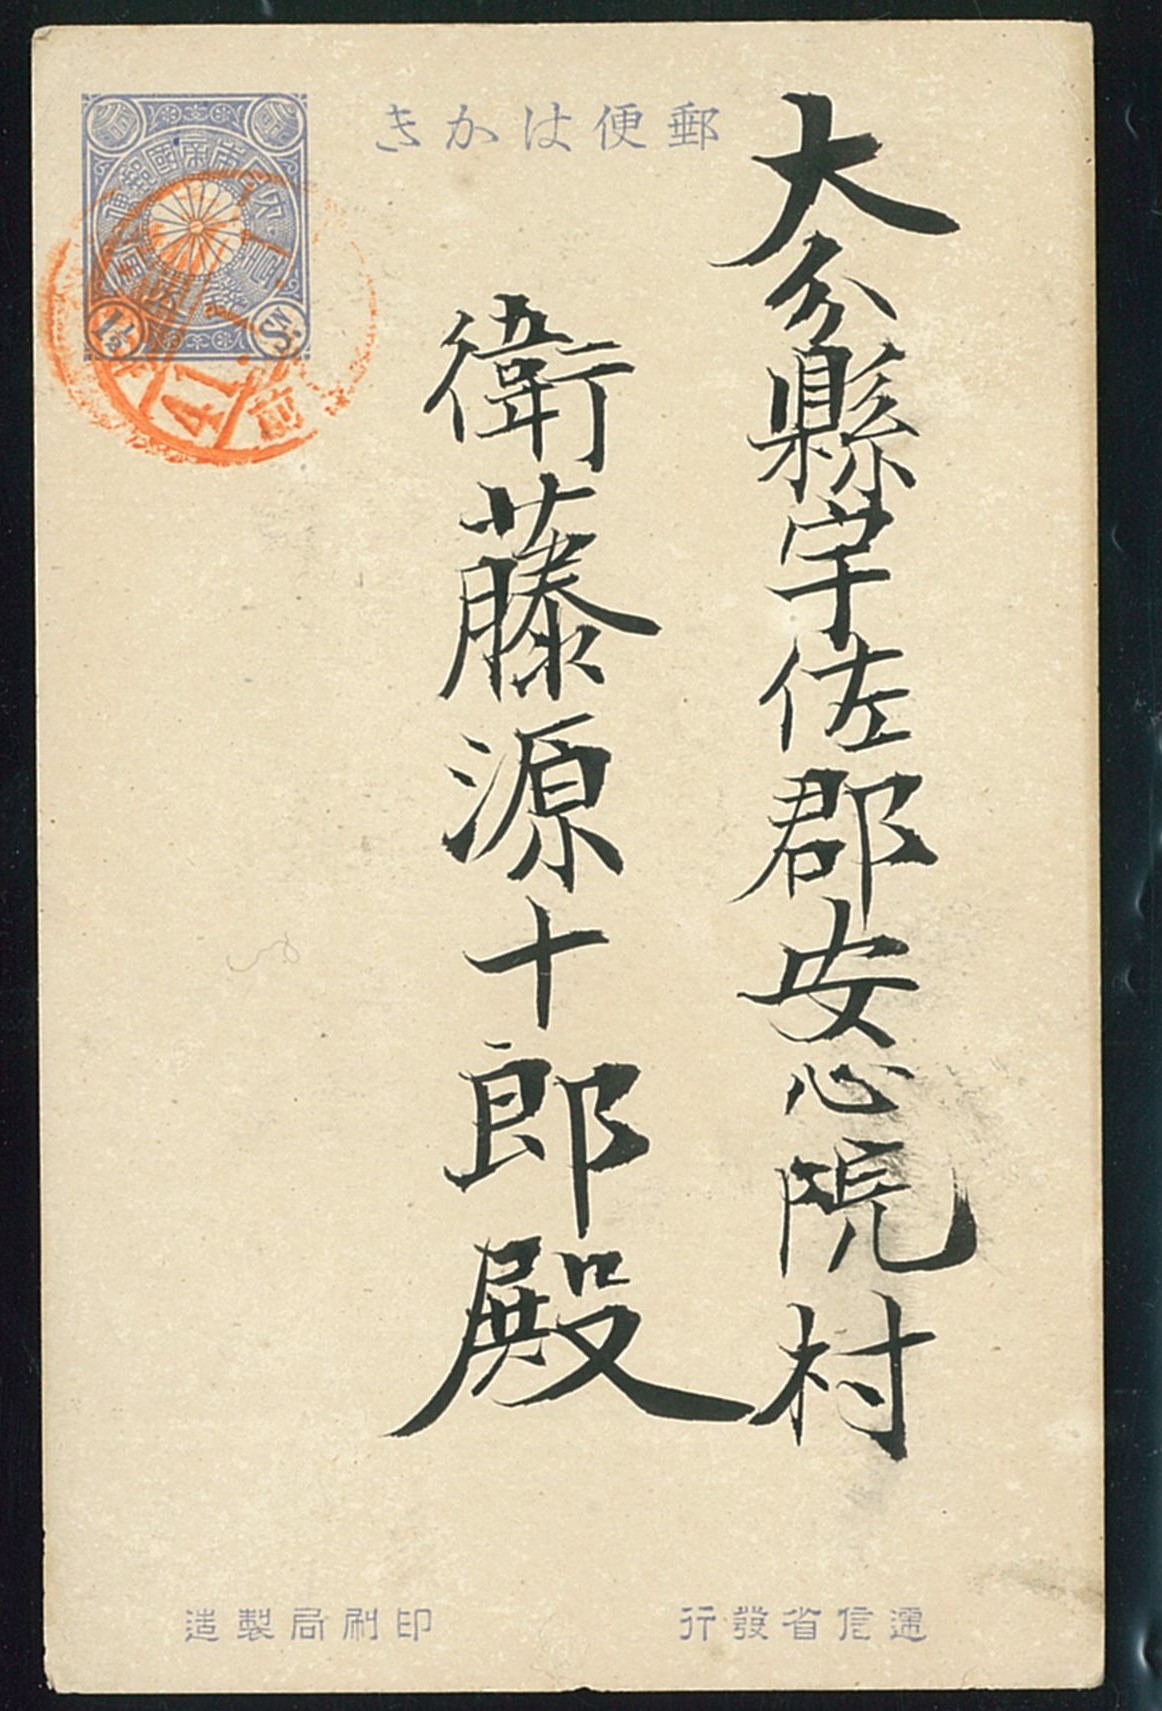 郵便はかき
大分縣宇佐郡安心院村
衛藤源十郎殿
大日本帝國郵便
壹錢五厘
1½ Sn.
41
前
遞信省發行
印刷局製造